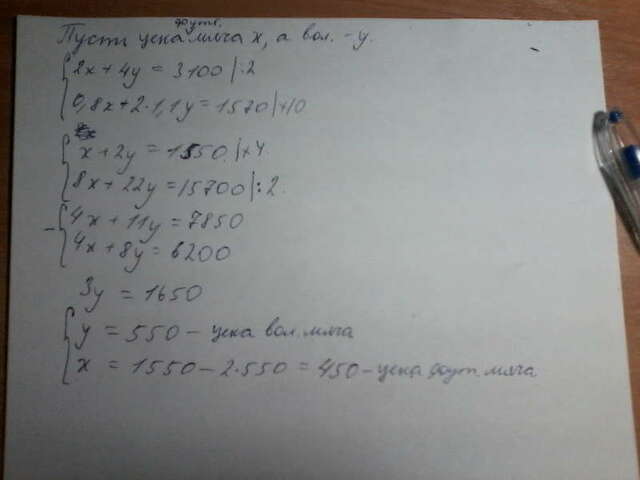 футб.
Пусть цена мяча x, а вол. - y.
2x + 4y = 3100 | :2
0,8x + 2·1,1y = 1570 | ·10
x + 2y = 1550. | ×4.
8x + 22y = 15700 | : 2.
- 4x + 11y = 7850
4x + 8y = 6200
3y = 1650
y = 550 - цена вол. мяча
x = 1550 - 2·550 = 450 - цена фут. мяча